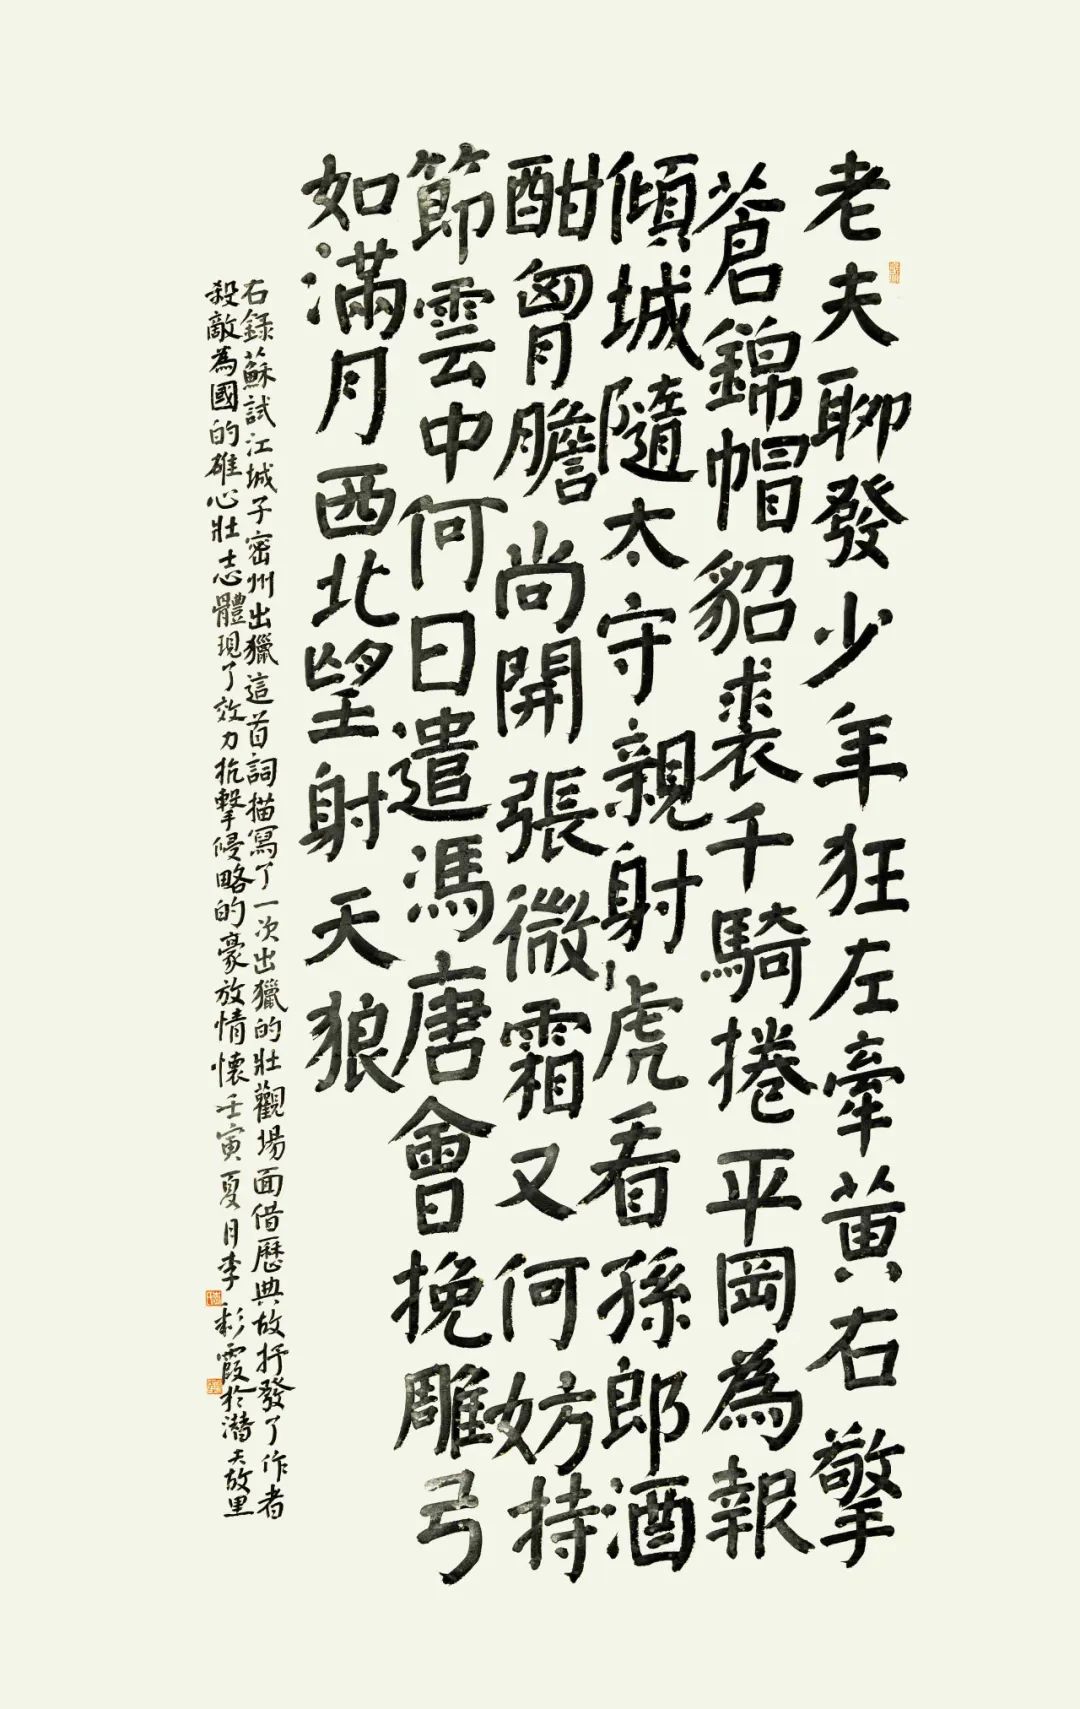 老夫聊發少年狂左牽黃右擎
蒼錦帽貂裘千騎捲平岡為報
傾城隨太守親射虎看孫郎酒
酣胷膽尚開張微霜又何妨持
節雲中何日遣馮唐會挽雕弓
如滿月西北望射天狼
右録蘇試江城子密州出獵這首詞描寫了一次出獵的壯觀場面借歷典故抒發了作者
殺敵為國的雄心壯志體現了效力抗擊侵略的豪放情懷壬寅夏月李彩霞於潛夫故里